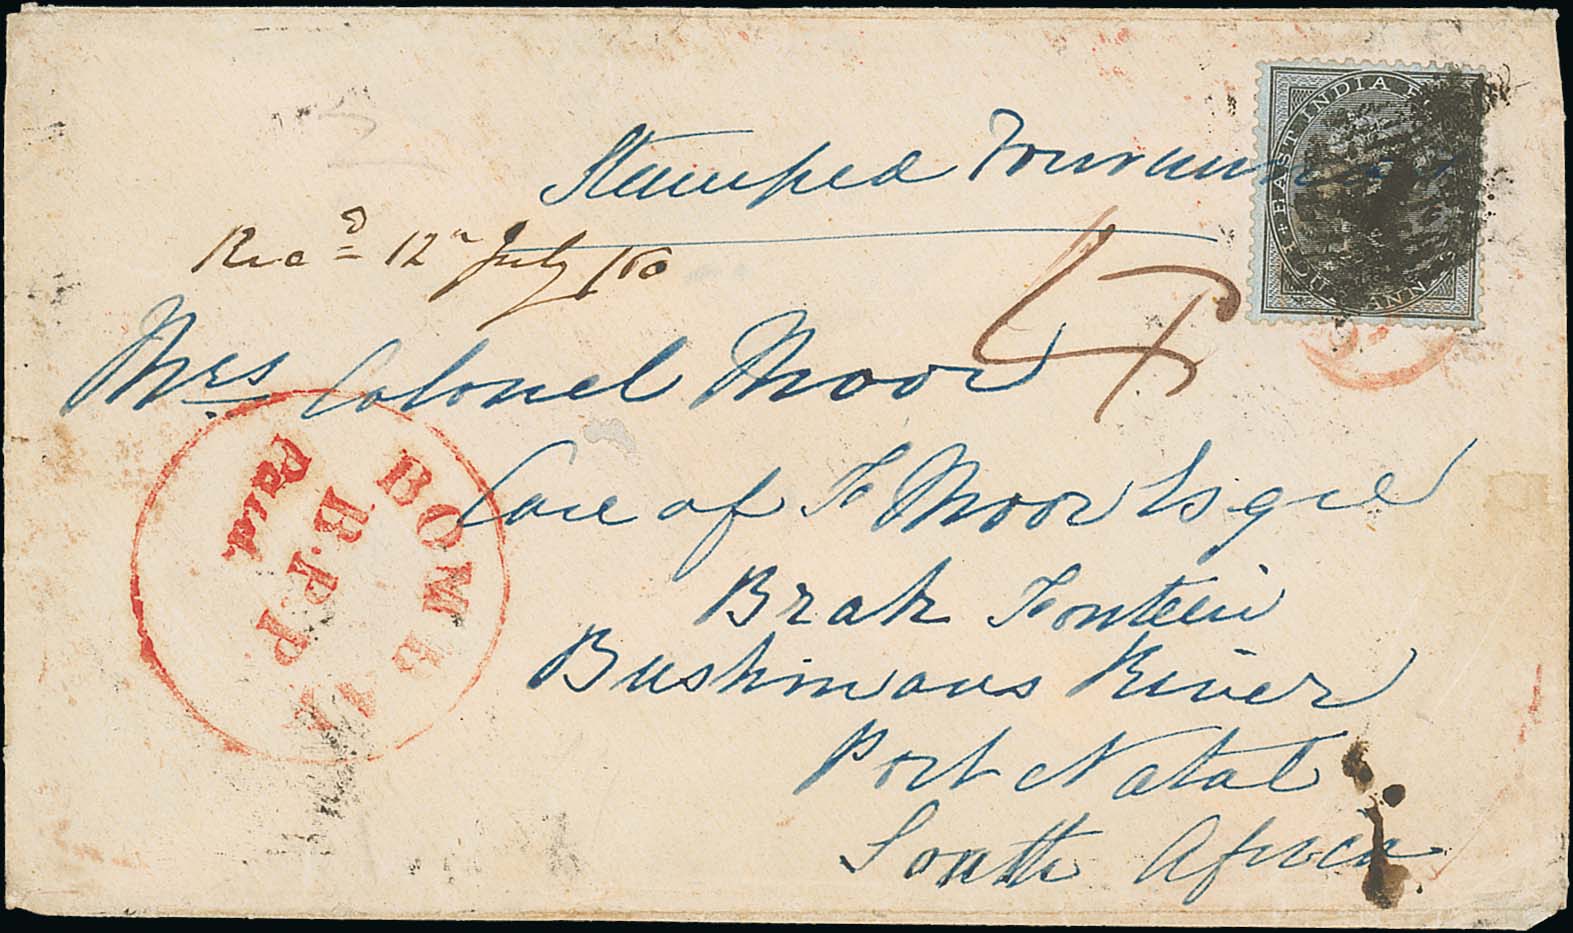 Stamped Four annas
EAST INDIA
ANN
Rec^d 12^th July /60
4
Mrs Colonel Moor
Care of F Moor Esqre
Brak Fontein
Bushmans River
Port Natal
South Africa
BOMBAY
B.P.P
Paid